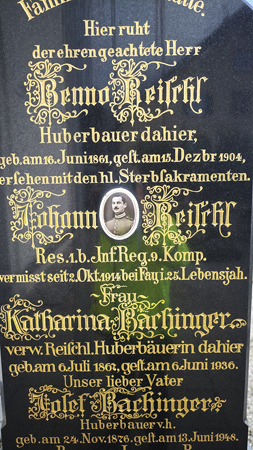 Hier ruht
der ehrengeachtete Herr
Benno Reischl
Huberbauer dahier,
geb. am 16. Juni 1861, gest. am 15. Dezbr 1904,
versehen mit den hl. Sterbsakramenten.
Johann Reischl
Res. 1. b. Inf Reg. 9. Komp.
vermisst seit 2. Okt. 1914 bei Fay i. 25. Lebensjah.
Frau
Katharina Bachinger
verw. Reischl, Huberbäuerin dahier
geb. am 6 Juli 1867, gest. am 6 Juni 1936.
Unser lieber Vater
Josef Bachinger
Huberbauer v. h.
geb. am 24. Nov. 1876. gest. am 13. Juni 1948.